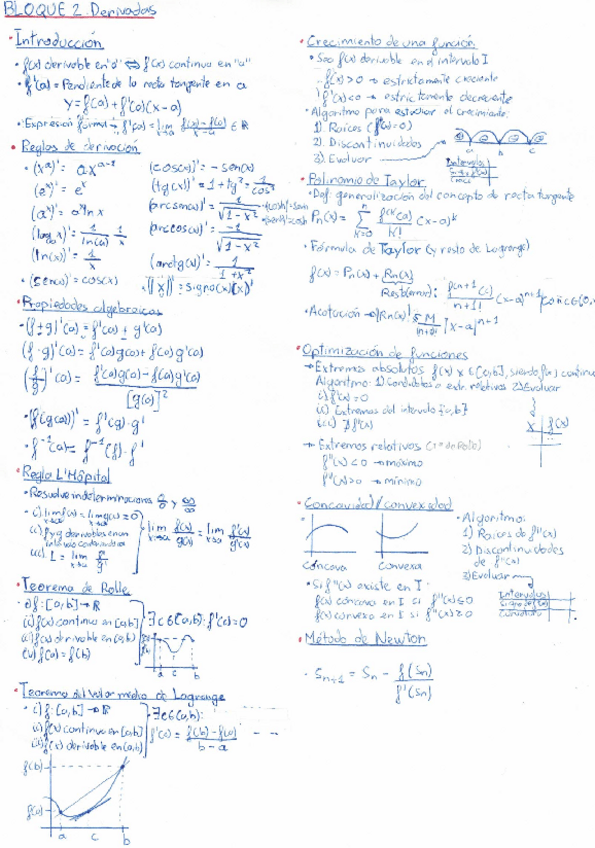 BLOQUE 2. Derivadas
· Introducción
· f(x) derivable en "a" ⇔ f(x) continua en "a"
· f'(a) = Pendiente de la recta tangente en a
y = f(a) + f'(a)(x-a)
· Expresión formal → f'(a) = lim x→a f(x)-f(a) / x-a ∈ ℝ
· Reglas de derivación
· (x^a)' = ax^(a-1)
(e^x)' = e^x
(a^x)' = a^x ln x
(log_a x)' = 1/ln(a) 1/x
(ln(x))' = 1/x
· (sen(x))' = cos(x)
(cos(x))' = -sen(x)
(tg(x))' = 1 + tg² = 1/cos²
(arcsen(x))' = 1/√(1-x²)
(arccos(x))' = -1/√(1-x²)
(arctg(x))' = 1/(1+x²)
· Propiedades algebraicas
· (f+g)'(a) = f'(a) + g'(a)
(f·g)'(a) = f'(a)g(a) + f(a)g'(a)
(f/g)'(a) = f'(a)g(a) - f(a)g'(a) / [g(a)]²
· (f(g(a)))' = f'(g)·g'
· f⁻¹(a) = f⁻¹(f)·f'
· Regla L'Hôpital
· Resolver indeterminaciones 0/0 y ∞/∞
· i) lim x→a f(x) = lim x→a g(x) = 0
ii) f y g derivables en un
iii) L = lim x→a f'/g'
lim x→a f(x)/g(x) = lim x→a f'(x)/g'(x)
· Teorema de Rolle
· i) f: [a,b] → ℝ
ii) f(x) continua en [a,b]
iii) f(x) derivable en (a,b)
iv) f(a) = f(b)
∃c∈(a,b): f'(c) = 0
a c b
· Teorema del valor medio de Lagrange
· i) f: [a,b] → ℝ
ii) f(x) continua en [a,b]
iii) f(x) derivable en (a,b)
· ∃c∈(a,b):
f'(c) = f(b)-f(a) / b-a
f(b)
f(a)
a c b
· Crecimiento de una función
· Sea f(x) derivable en el intervalo I
f'(x) > 0 → estrictamente creciente
f'(x) < 0 → estrictamente decreciente
· Algoritmo para estudiar el crecimiento:
1). Raíces (f'(x)=0)
2). Discontinuidades
3). Evaluar
a b c
Intervalo
· Polinomio de Taylor
· Def: generalización del concepto de recta tangente
Pn(x) = Σ k=0 n f^(k)(a)/k! (x-a)^k
· Fórmula de Taylor (y resto de Lagrange)
f(x) = Pn(x) + Rn(x)
Rest(error): f^(n+1)(c)/n+1! (x-a)^(n+1)
· Acotación → |Rn(x)| ≤ M/(n+1)! |x-a|^(n+1)
· Optimización de funciones
→ Extremos absolutos f(x) x∈[a,b], siendo f(x) continua
Algoritmo: 1) Candidatos a extr. relativos 2) Evaluar
i) f'(x)=0
ii) Extremos del intervalo [a,b]
iii) ∄ f'(x)
x f(x)
→ Extremos relativos
f''(x) < 0 → máximo
f''(x) > 0 → mínimo
· Concavidad/convexidad
Cóncava
Convexa
· Algoritmo:
1) Raíces de f''(x)
2) Discontinuidades
de f''(x)
3) Evaluar
Intervalos
Signo f''(x)
· Si f''(x) existe en I:
f(x) cóncava en I si f''(x) ≤ 0
f(x) convexa en I si f''(x) ≥ 0
· Método de Newton
· S_(n+1) = S_n - f(S_n)/f'(S_n)